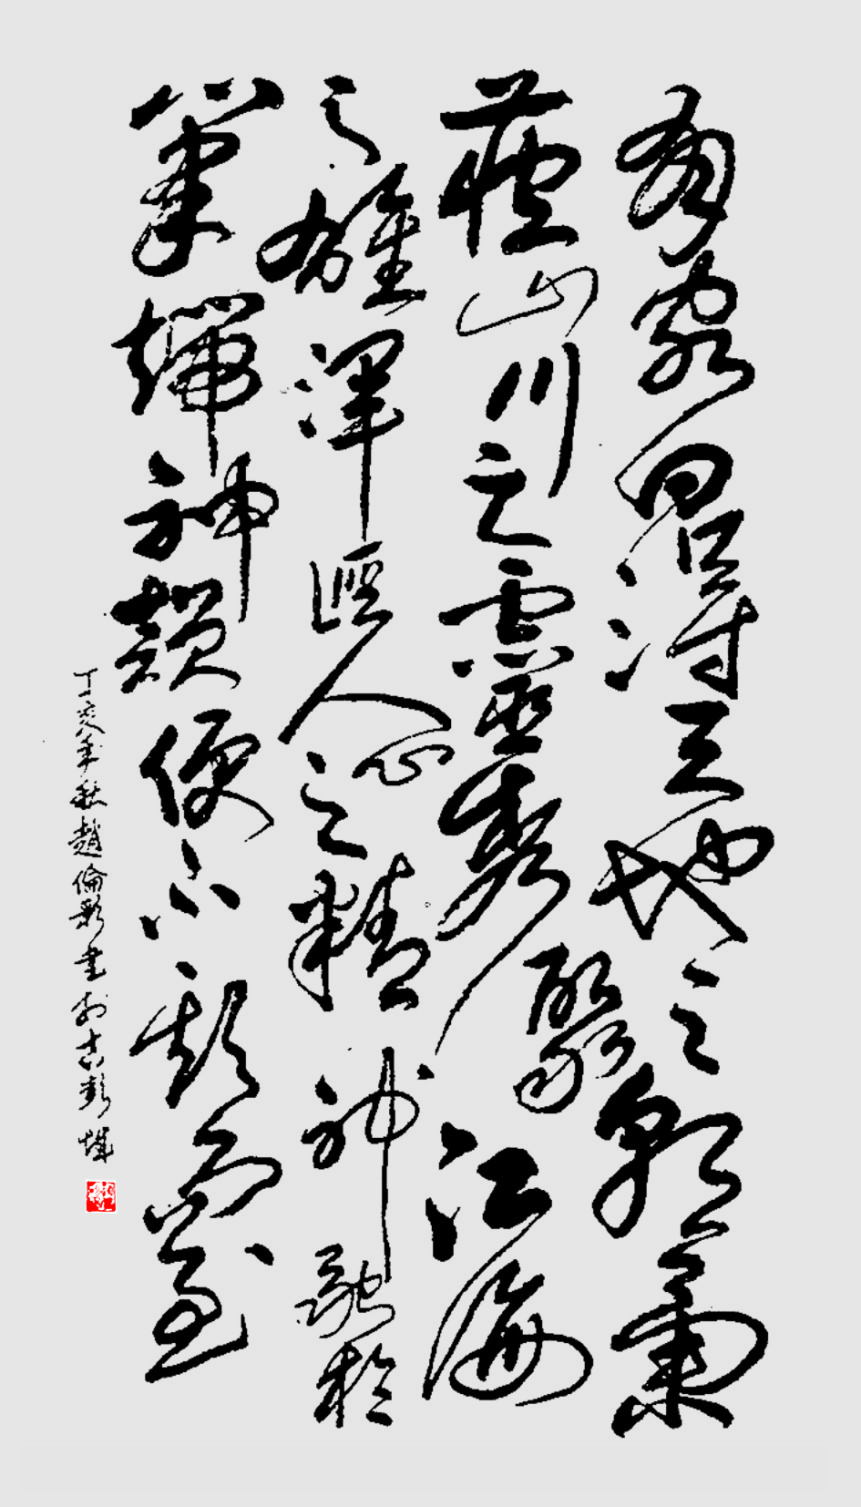 得天地之朝氣
蘊山川之靈秀聚江海
之雄渾匯人心之精神融於
筆端神韻便不期而至
丁亥年秋趙倫書於古彭城